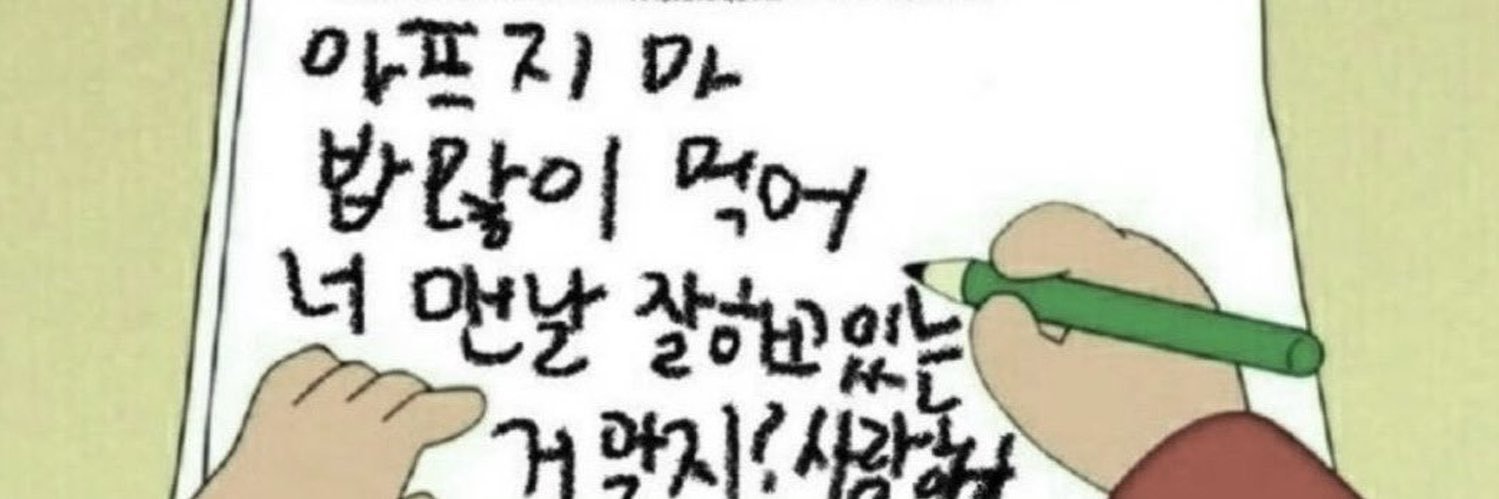 아프지 마
밥 많이 먹어
너 맨날 잘하고 있는
거 맞지? 사랑해